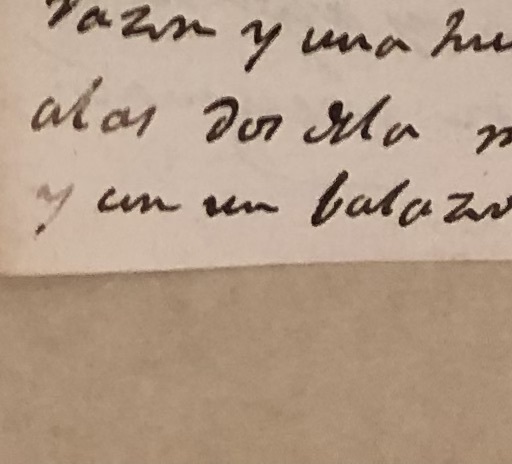 razon y una hu
alas dos dela m
y con un balazo